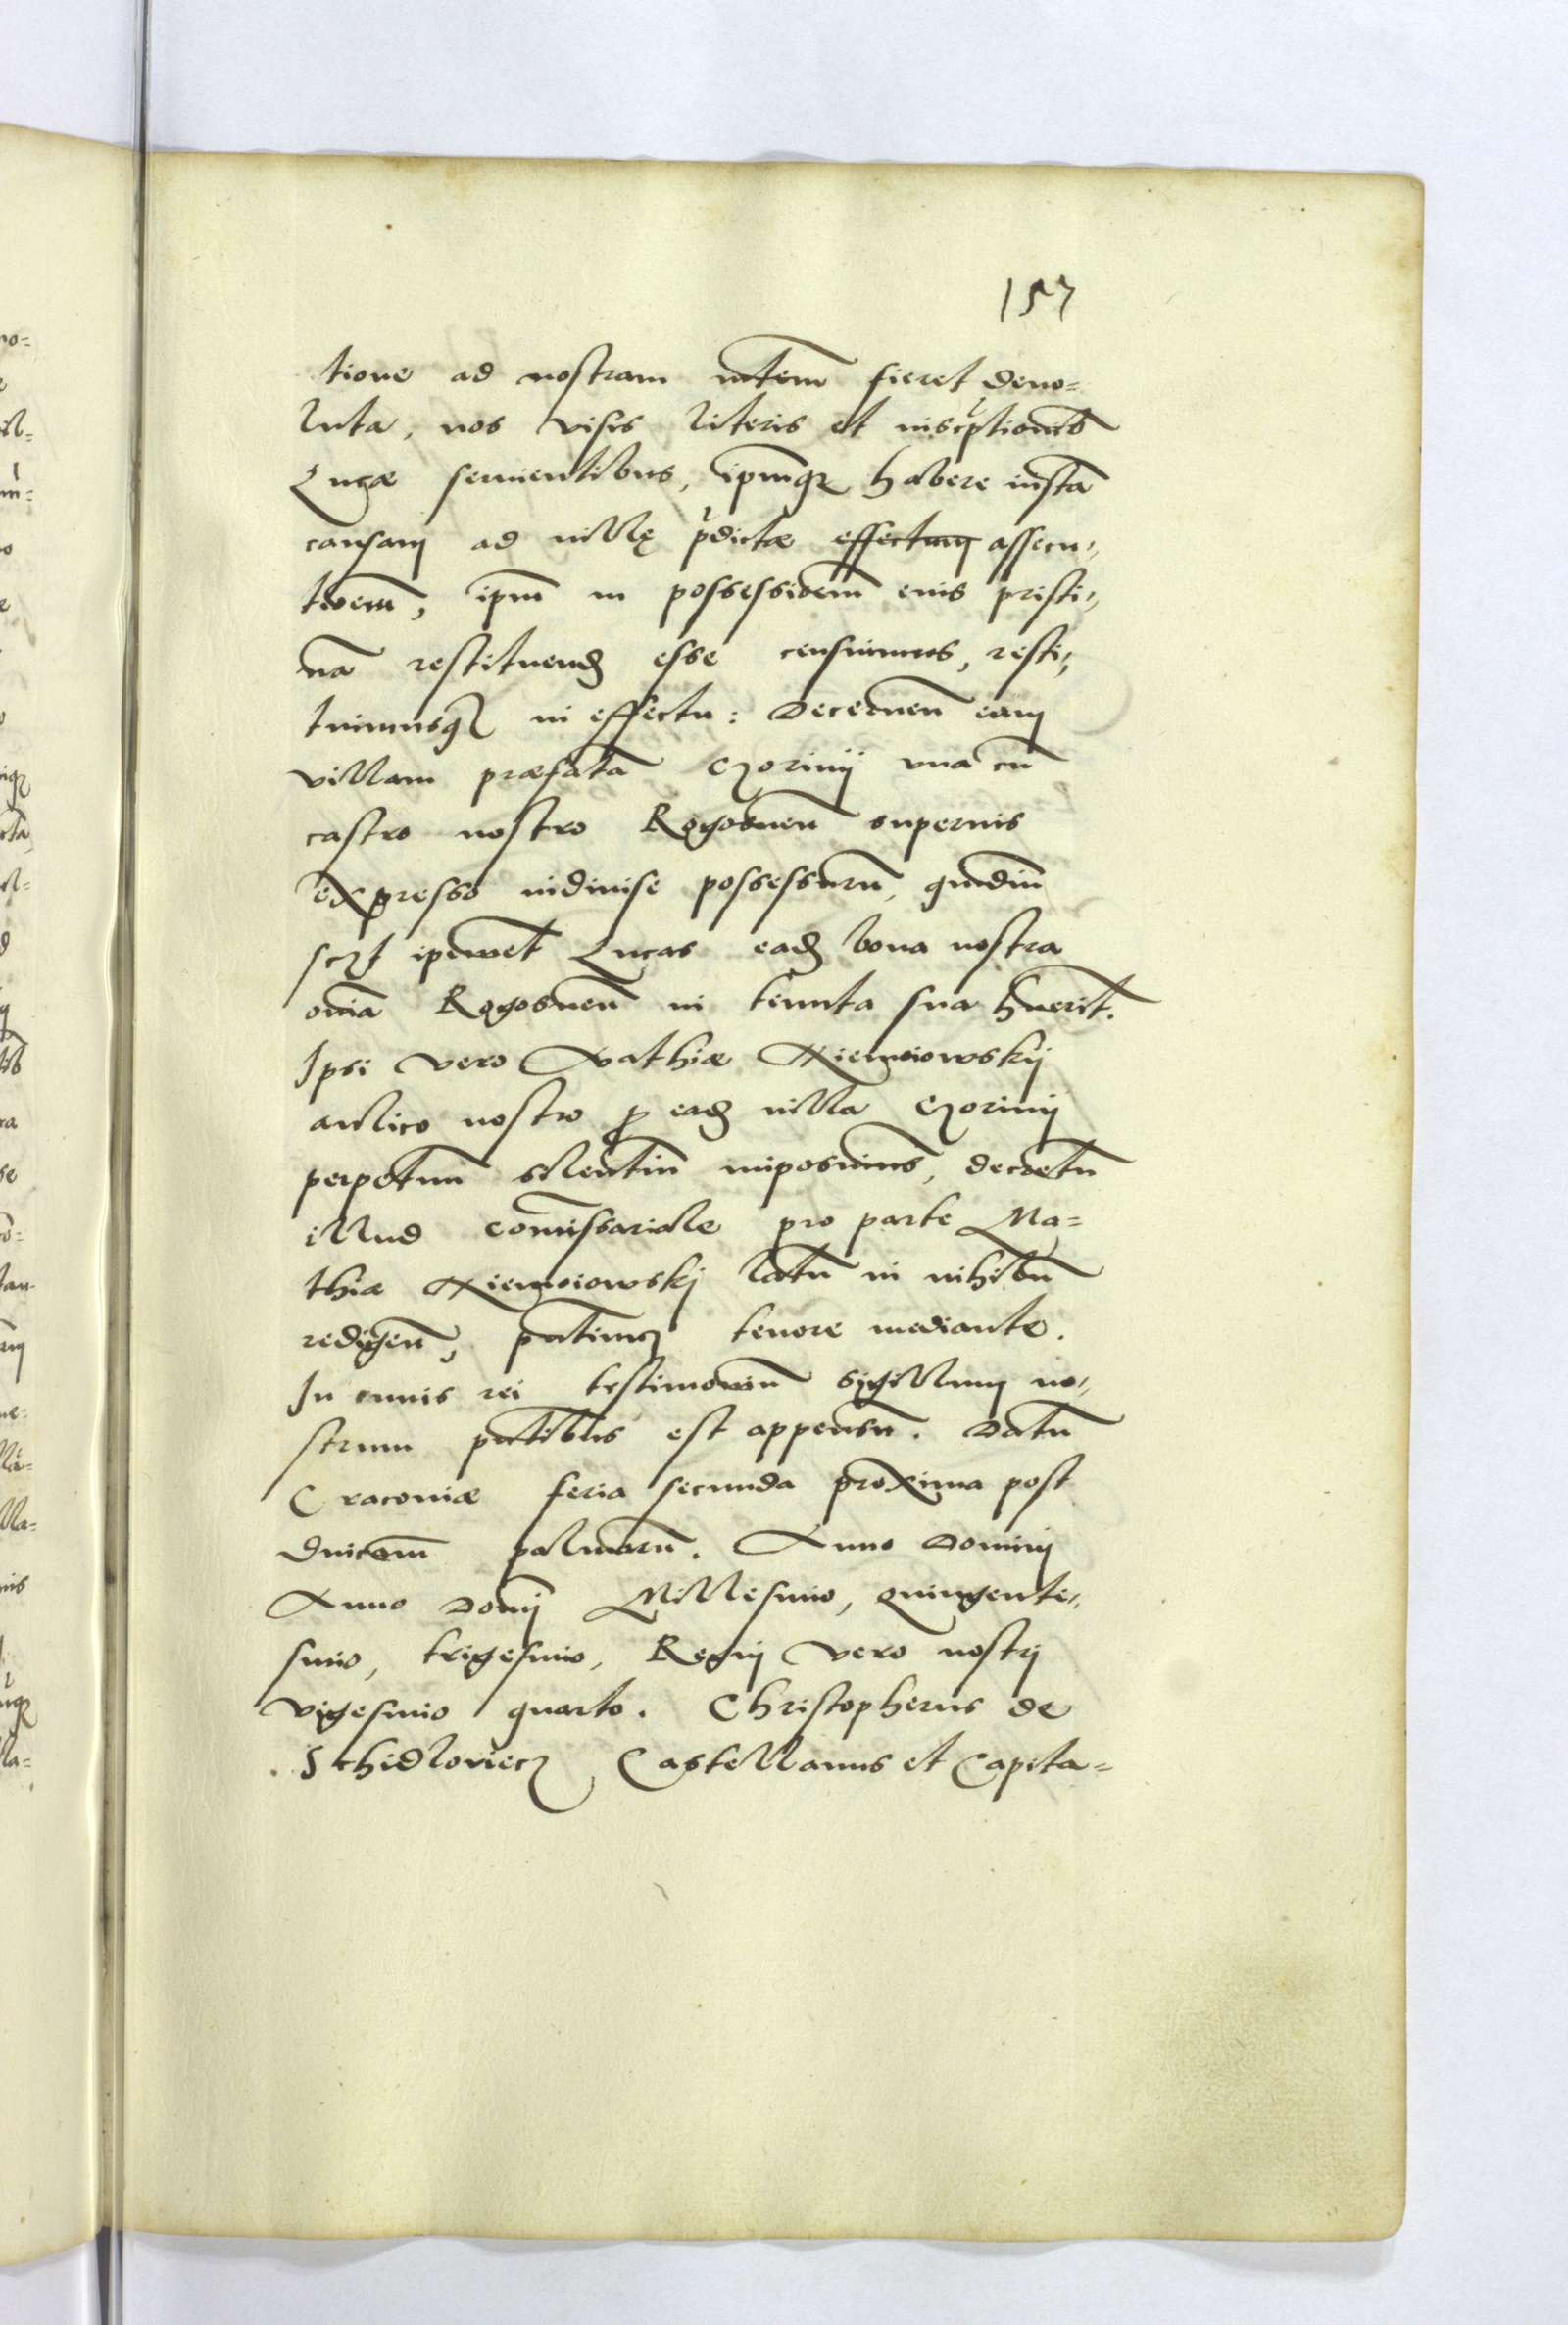 157
tione ad nostram mtem fieret deuo=
luta, nos visis literis et inscrptionib
Lucæ seruientibus, ipmq habere iusta
causam ad villę prdictæ effectum assecu„
tioem, ipm in possessioem eius pristi„
nā restituend esse censuimus, resti„
tuimusq in effectu: Decernen eam
villam præfatā Czorinij vna cū
castro nostro Rogosnen superius
expresso indiuise possessurū, qmdiu
sczt ipemet Lucas ead bona nostra
oīa Rogosnen in tenuta sua huerit.
Ipsi vero Mathiæ Niemoiowskij
aulico nostro p ead villa Czorinij
perpetuū silentiū imposuim, decretū
illud comissariale pro parte Ma=
thiæ Niemoiowskj latū in nihilū
redigen, pntium tenore mediante.
In cuius rei testimoniū sigillum no„
strum pntibus est appensū. Datū
Cracoviæ feria secunda proxima post
dnicam palmarū. Anno Dominj
Anno Domj Millesimo, quingente„
simo, trigesimo, Regnj vero nostrj
vigesimo quarto. Christopherus de
Schidloviecz Castellanus et Capita=